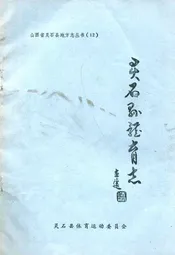 山西省灵石县地方志丛书(13)
灵石县体育志
灵石县体育运动委员会